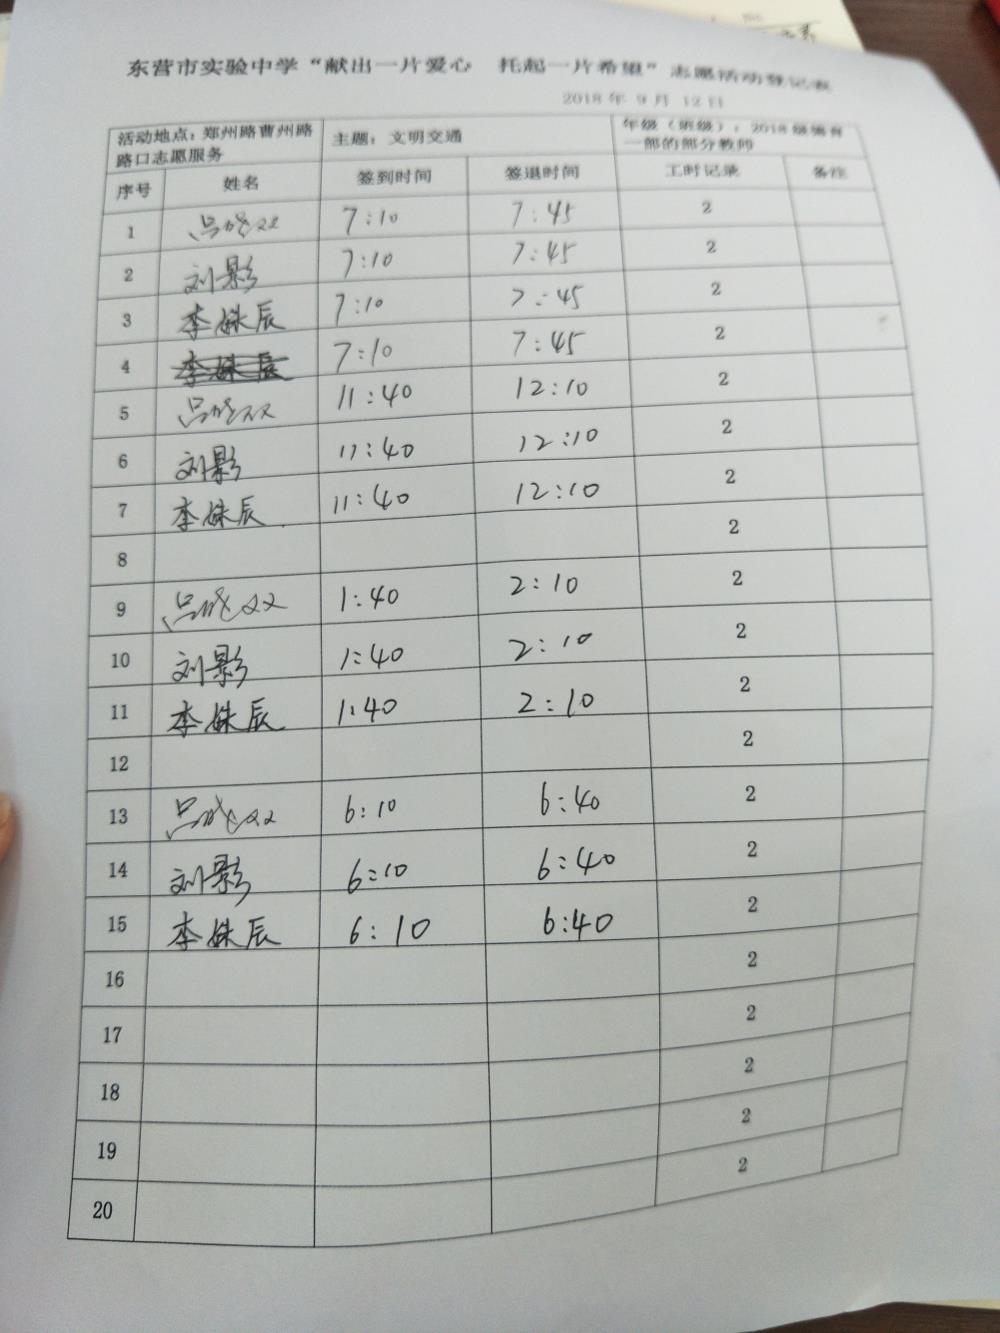 东营市实验中学“献出一片爱心 托起一片希望”志愿活动登记表
2018 年 9 月 12 日
活动地点：郑州路曹州路路口志愿服务 主题：文明交通 年级（班级）：2018级德育一部的部分教师
序号 姓名 签到时间 签退时间 工时记录 备注
1 吕晓双 7:10 7:45 2
2 刘影 7:10 7:45 2
3 李姝辰 7:10 7:45 2
4 李姝辰 7:10 7:45 2
5 吕晓双 11:40 12:10 2
6 刘影 11:40 12:10 2
7 李姝辰 11:40 12:10 2
8 2
9 吕晓双 1:40 2:10 2
10 刘影 1:40 2:10 2
11 李姝辰 1:40 2:10 2
12 2
13 吕晓双 6:10 6:40 2
14 刘影 6:10 6:40 2
15 李姝辰 6:10 6:40 2
16 2
17 2
18 2
19 2
20 2